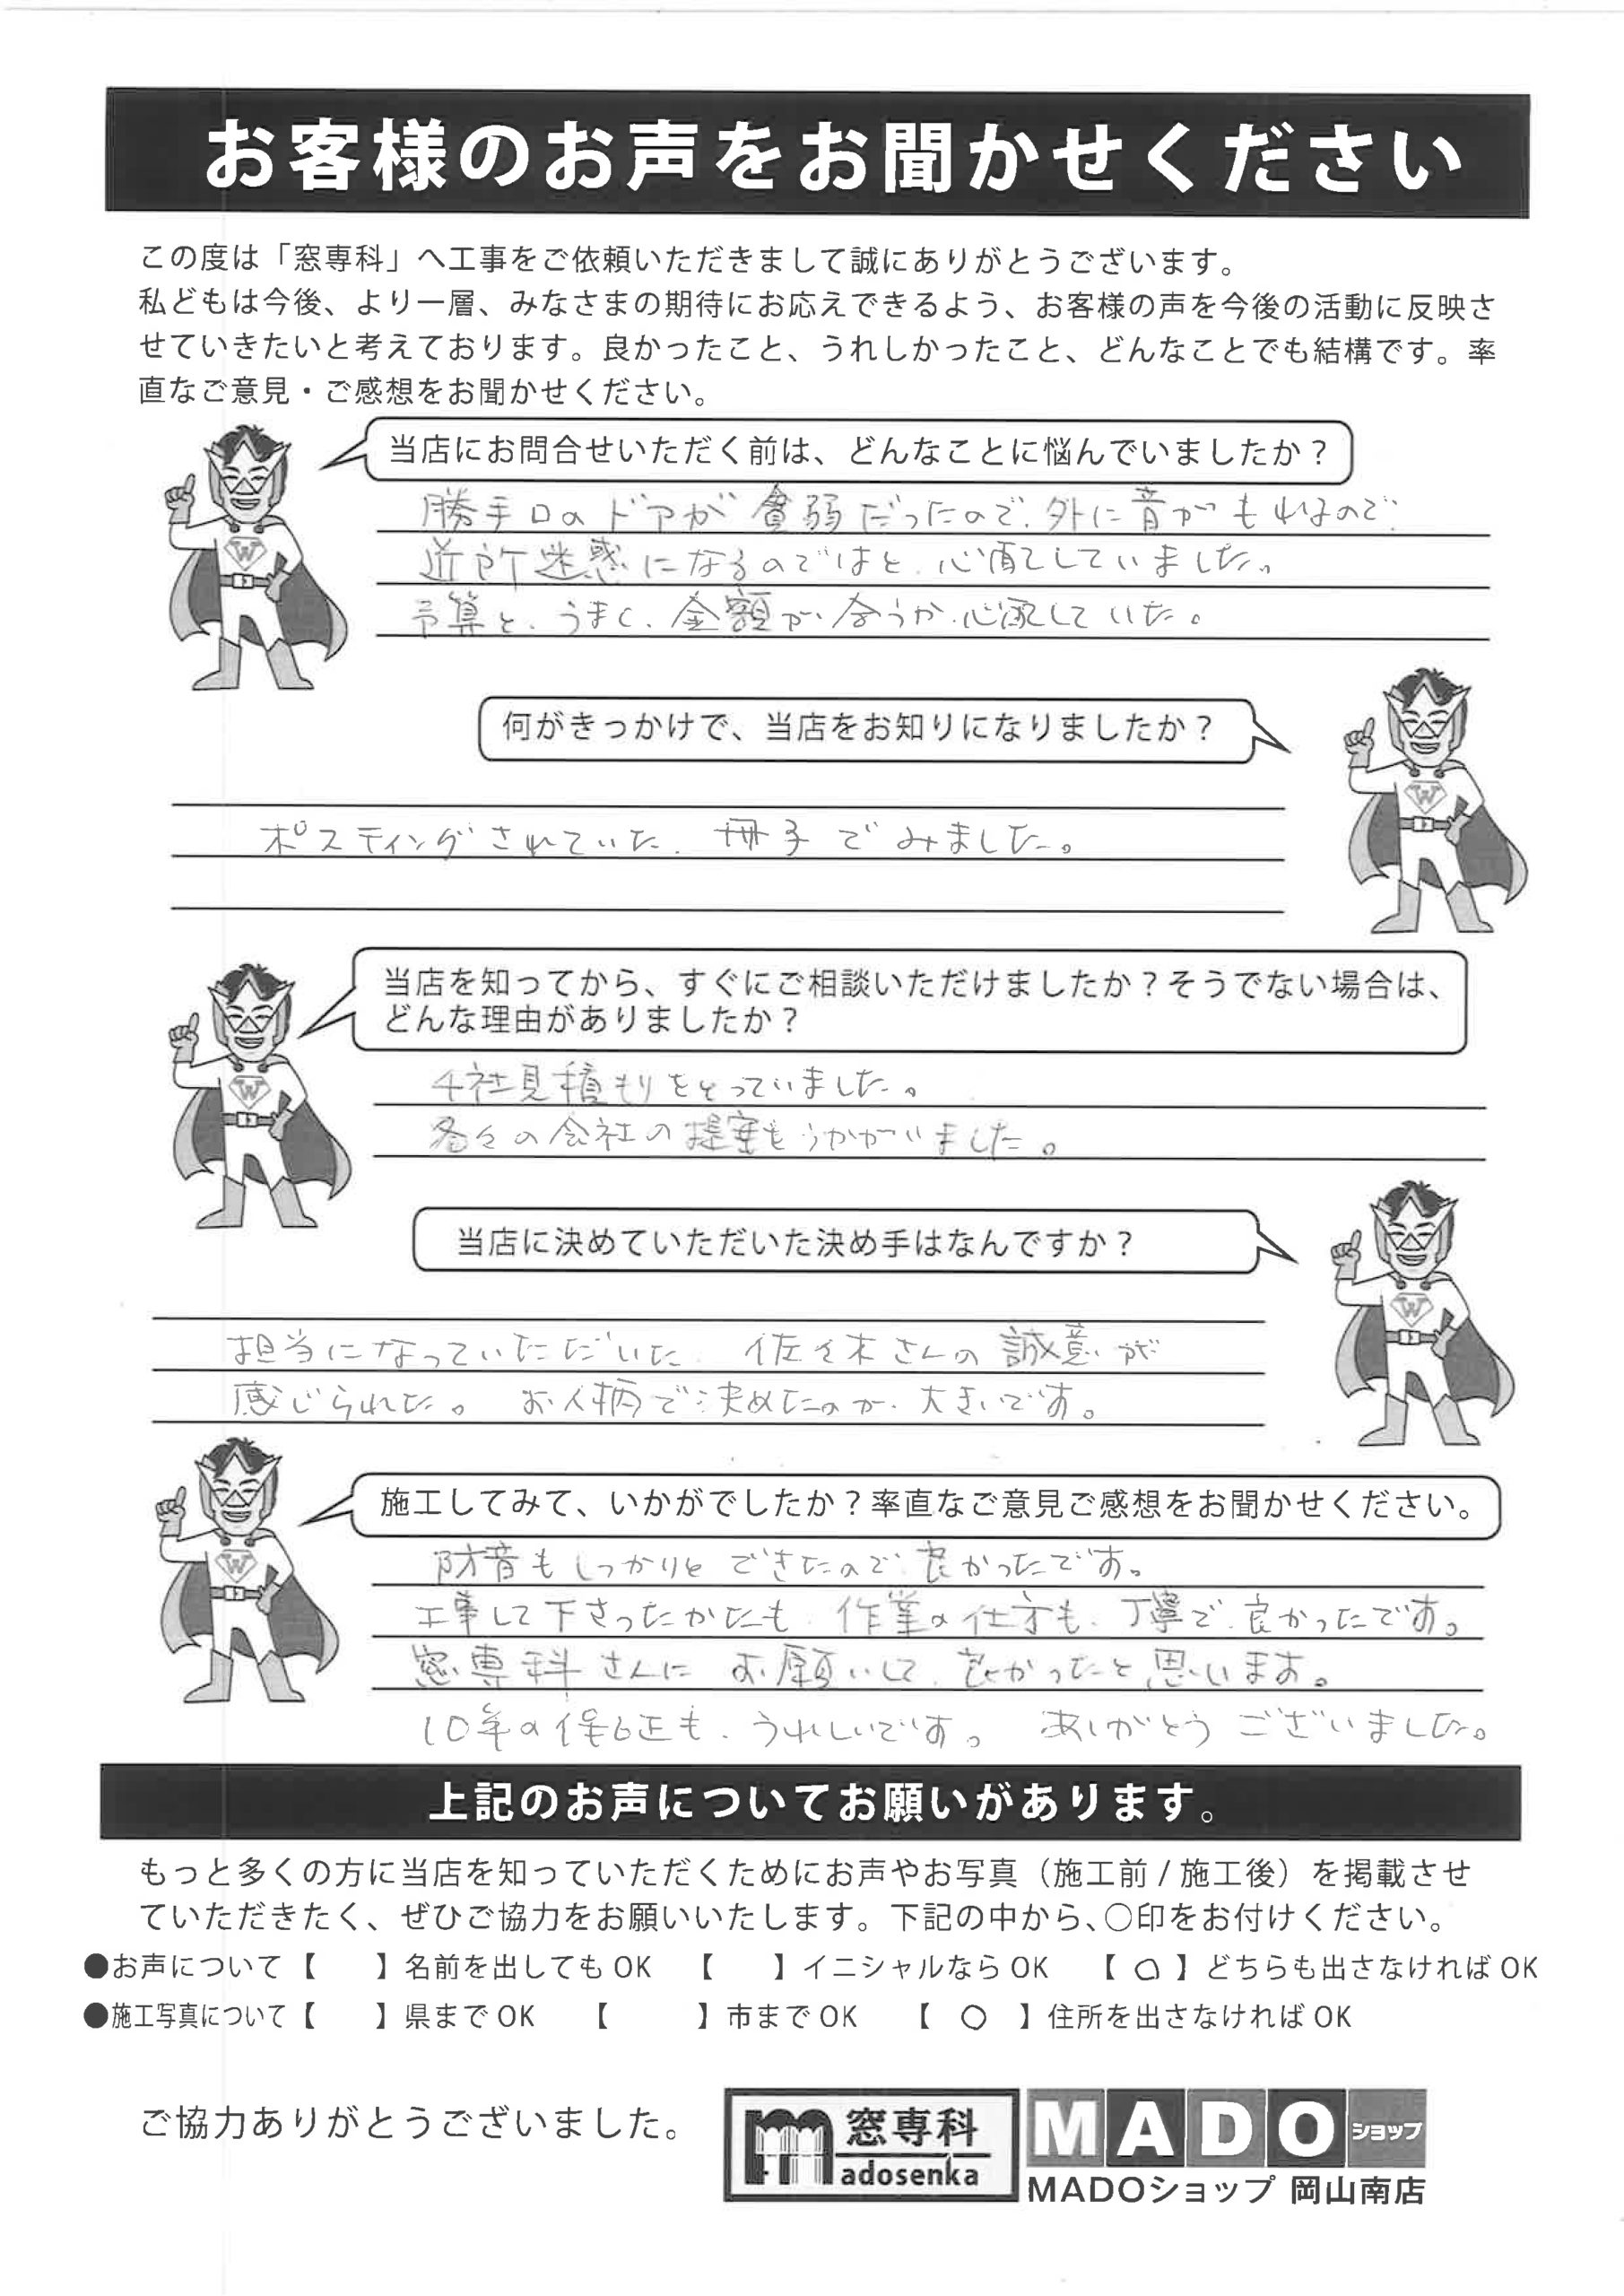 お客様のお声をお聞かせください
この度は「窓専科」へ工事をご依頼いただきまして誠にありがとうございます。
私どもは今後、より一層、みなさまの期待にお応えできるよう、お客様の声を今後の活動に反映さ
せていきたいと考えております。良かったこと、うれしかったこと、どんなことでも結構です。率
直なご意見・ご感想をお聞かせください。
当店にお問合せいただく前は、どんなことに悩んでいましたか？
勝手口のドアが貧弱だったので、外に音がもれるので、
近所迷惑になるのではと、心配していました。
予算と、うまく、金額が、合うか、心配していた。
何がきっかけで、当店をお知りになりましたか？
ポスティングされていた、冊子でみました。
当店を知ってから、すぐにご相談いただけましたか？そうでない場合は、
どんな理由がありましたか？
4社見積もりをとっていました。
各々の会社の提案もうかがいました。
当店に決めていただいた決め手はなんですか？
担当になっていただいた、佐々木さんの誠意が
感じられた。お人柄で決めたのが、大きいです。
施工してみて、いかがでしたか？率直なご意見ご感想をお聞かせください。
防音もしっかりとできたので、良かったです。
工事して下さったかたも、作業の仕方も、丁寧で、良かったです。
窓専科さんにお願いして、良かったと思います。
10年の保証も、うれしいです。ありがとうございました。
上記のお声についてお願いがあります。
もっと多くの方に当店を知っていただくためにお声やお写真（施工前/施工後）を掲載させ
ていただきたく、ぜひご協力をお願いいたします。下記の中から、〇印をお付けください。
●お声について【　　】名前を出してもOK　【　　】イニシャルならOK　【 〇 】どちらも出さなければOK
●施工写真について【　　】県までOK　【　　】市までOK　【 〇 】住所を出さなければOK
ご協力ありがとうございました。
窓専科
madosenka
MADOショップ
MADOショップ 岡山南店